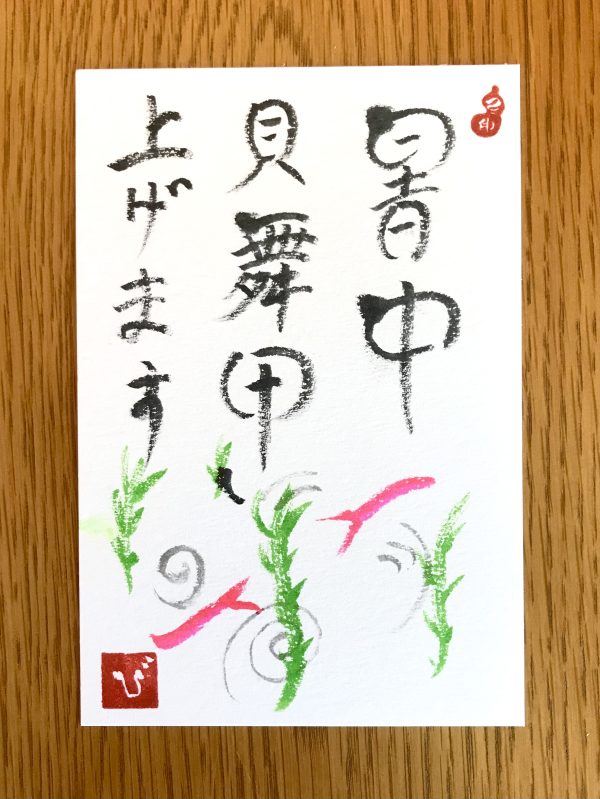 暑中
見舞申
上げます
び